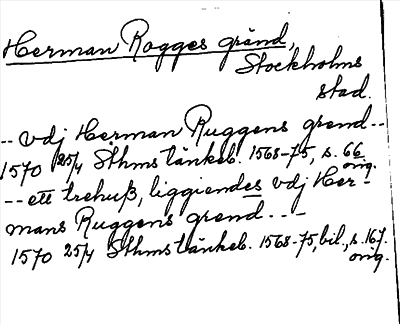 Herman Rogges gränd,
Stockholms
stad.
-- vdj Herman Ruggens grend --
1570 25/4 Sthms tänkeb. 1568-75, s. 66
orig.
-- ett trehuß, liggiendes vdj Her-
mans Ruggens grend - - -
1570 25/4 Sthms tänkeb. 1568-75, bil., s. 167.
orig.